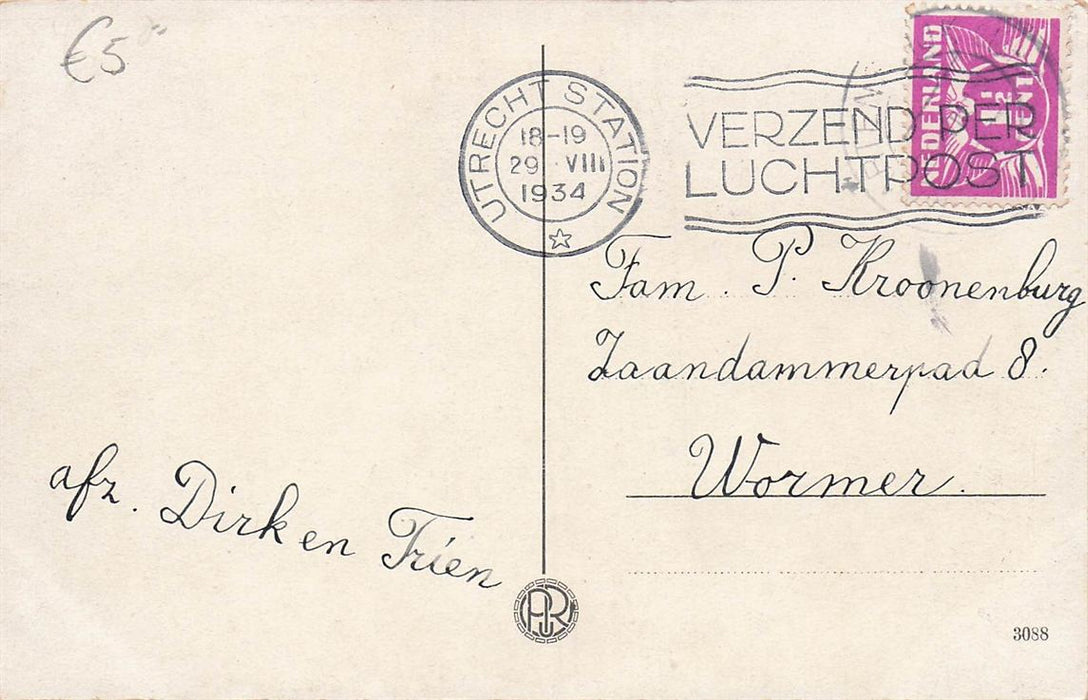 €5
UTRECHT STATION
18-19
29 VIII
1934
VERZEND PER
LUCHTPOST
NEDERLAND
1½
CENT
Fam. P. Kroonenburg
Zaandammerpad 8.
Wormer.
afz. Dirk en Trien
3088